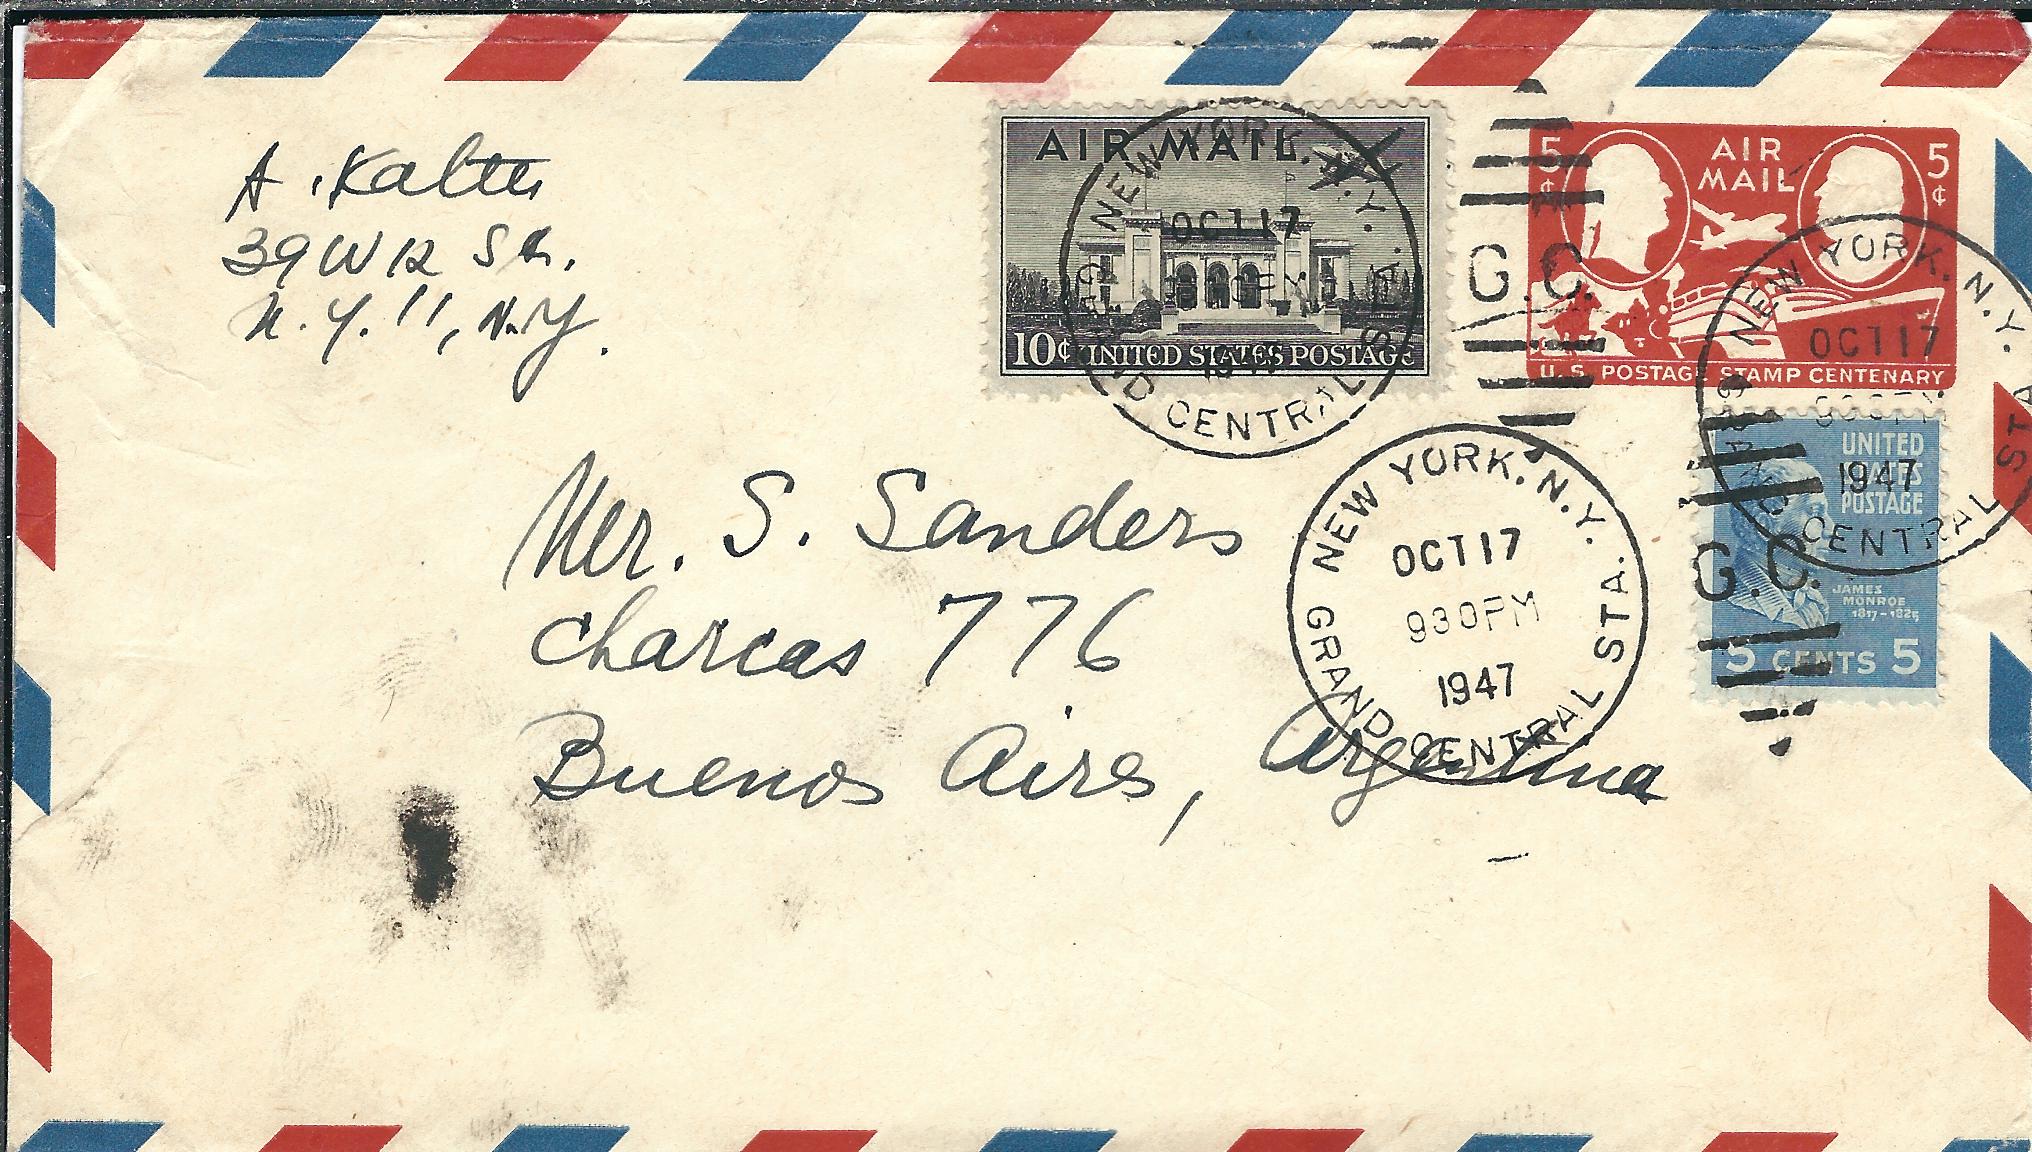 A. Kalter
39 W 12 St.
N.Y. 11, N.Y.
AIR MAIL
10¢ UNITED STATES POSTAGE
NEW YORK, N.Y.
OCT 17
1947
GRAND CENTRAL STA.
G.C.
5¢ AIR MAIL 5¢
U.S. POSTAGE STAMP CENTENARY
NEW YORK, N.Y.
OCT 17
930 PM
1947
GRAND CENTRAL STA.
UNITED
STATES
POSTAGE
JAMES
MONROE
1817-1825
5 CENTS 5
G.C.
NEW YORK, N.Y.
OCT 17
930 PM
1947
GRAND CENTRAL STA.
Mr. S. Sanders
Charcas 776
Buenos Aires, Argentina